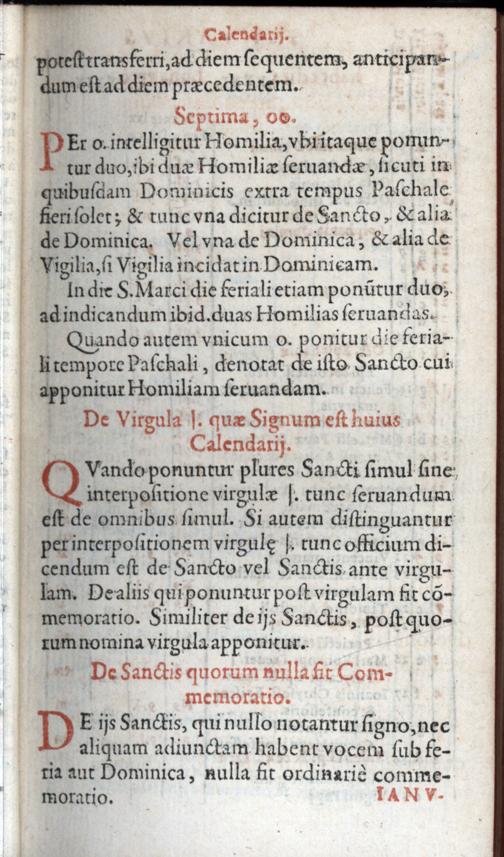 Calendarij.
potest transferri, ad diem sequentem, anticipan-
dum est ad diem præcedentem.
Septima, oo.
PEr o. intelligitur Homilia, vbi itaque ponun-
tur duo, ibi duæ Homiliæ seruandæ, sicuti in
quibusdam Dominicis extra tempus Paschale
fieri solet; & tunc vna dicitur de Sancto, & alia
de Dominica. Vel vna de Dominica, & alia de
Vigilia, si Vigilia incidat in Dominicam.
In die S. Marci die feriali etiam ponũtur duo,
ad indicandum ibid. duas Homilias seruandas.
Quando autem vnicum o. ponitur die feria-
li tempore Paschali, denotat de isto Sancto cui
apponitur Homiliam seruandam.
De Virgula |. quæ Signum est huius
Calendarij.
QVando ponuntur plures Sancti simul sine
interpositione virgulæ |. tunc seruandum
est de omnibus simul. Si autem distinguantur
per interpositionem virgulę |. tunc officium di-
cendum est de Sancto vel Sanctis ante virgu-
lam. De aliis qui ponuntur post virgulam fit cõ-
memoratio. Similiter de ijs Sanctis, post quo-
rum nomina virgula apponitur.
De Sanctis quorum nulla fit Com-
memoratio.
DE ijs Sanctis, qui nullo notantur signo, nec
aliquam adiunctam habent vocem sub fe-
ria aut Dominica, nulla fit ordinariè comme-
moratio.
IANV-